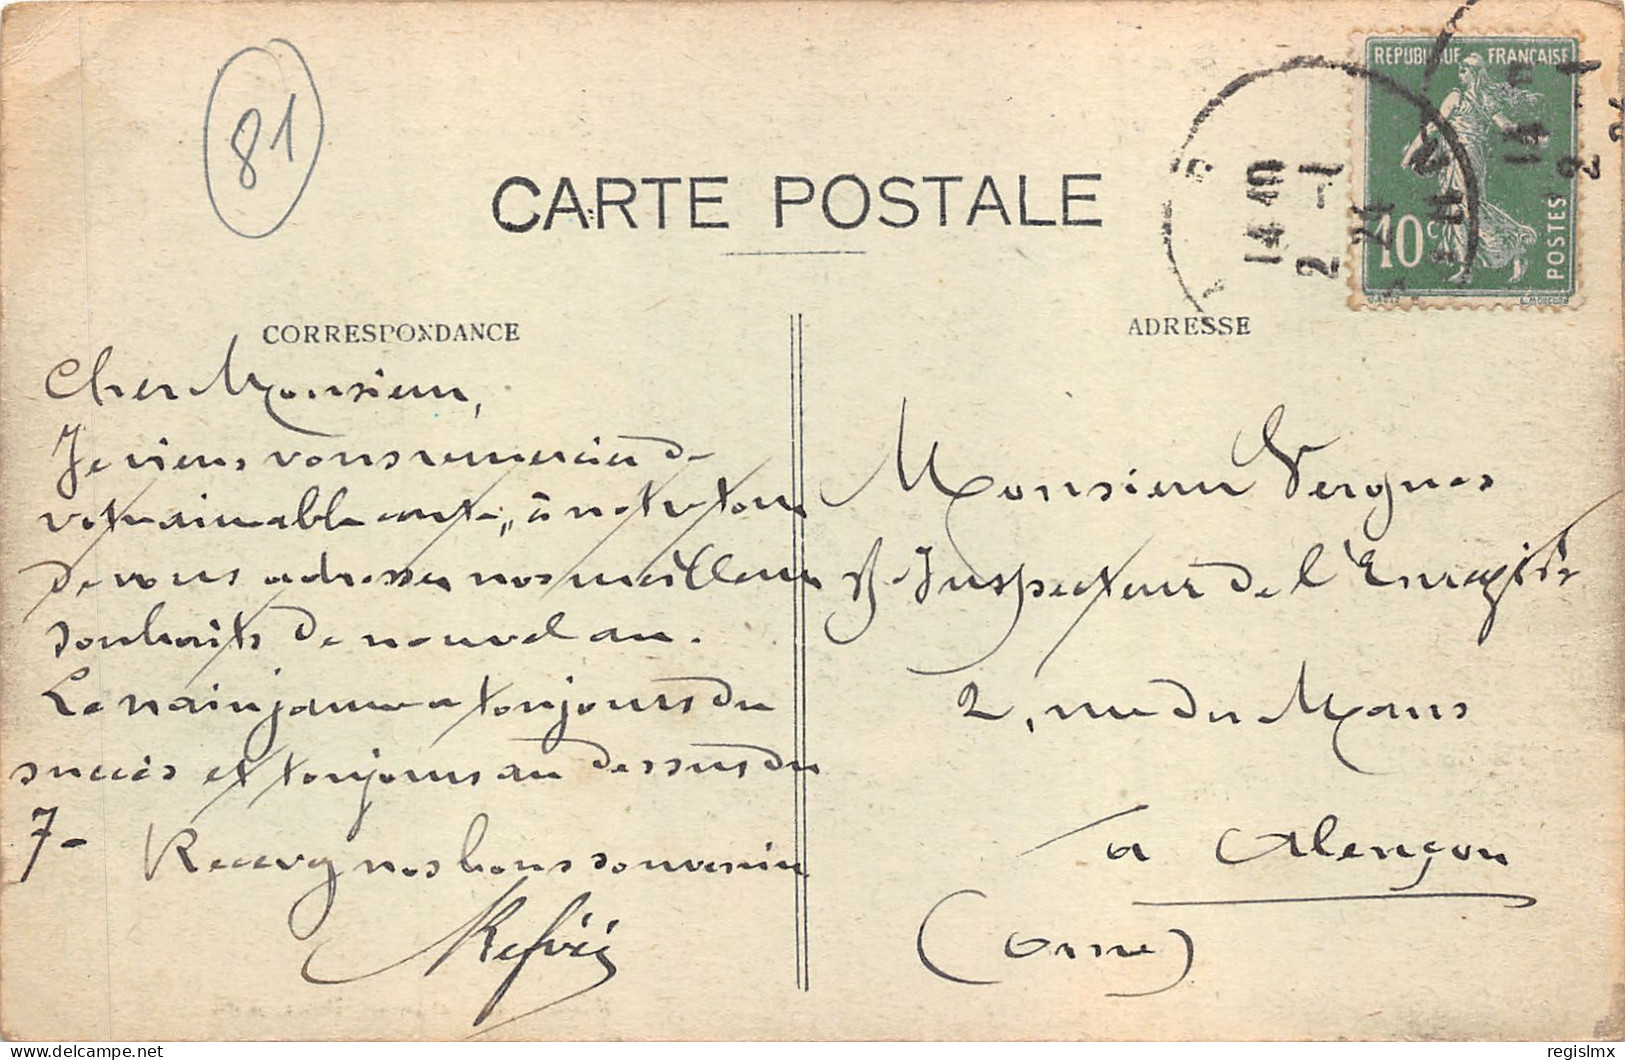 81
CARTE POSTALE
REPUBLIQUE FRANÇAISE
10c
POSTES
14 10
2 - 1
24
CORRESPONDANCE
Cher Monsieur,
Je viens vous remercier de
votre aimable carte, à notre tour
de vous adresser nos meilleurs
souhaits de nouvel an.
Le nain jaune a toujours du
succès et toujours au dessus du
7 -
Recevez nos bons souvenirs
ADRESSE
Monsieur Vergnes
S-Inspecteur de l'Enregist
2, rue du Mans
à Alençon
(Orne)
delcampe.net
regislmx